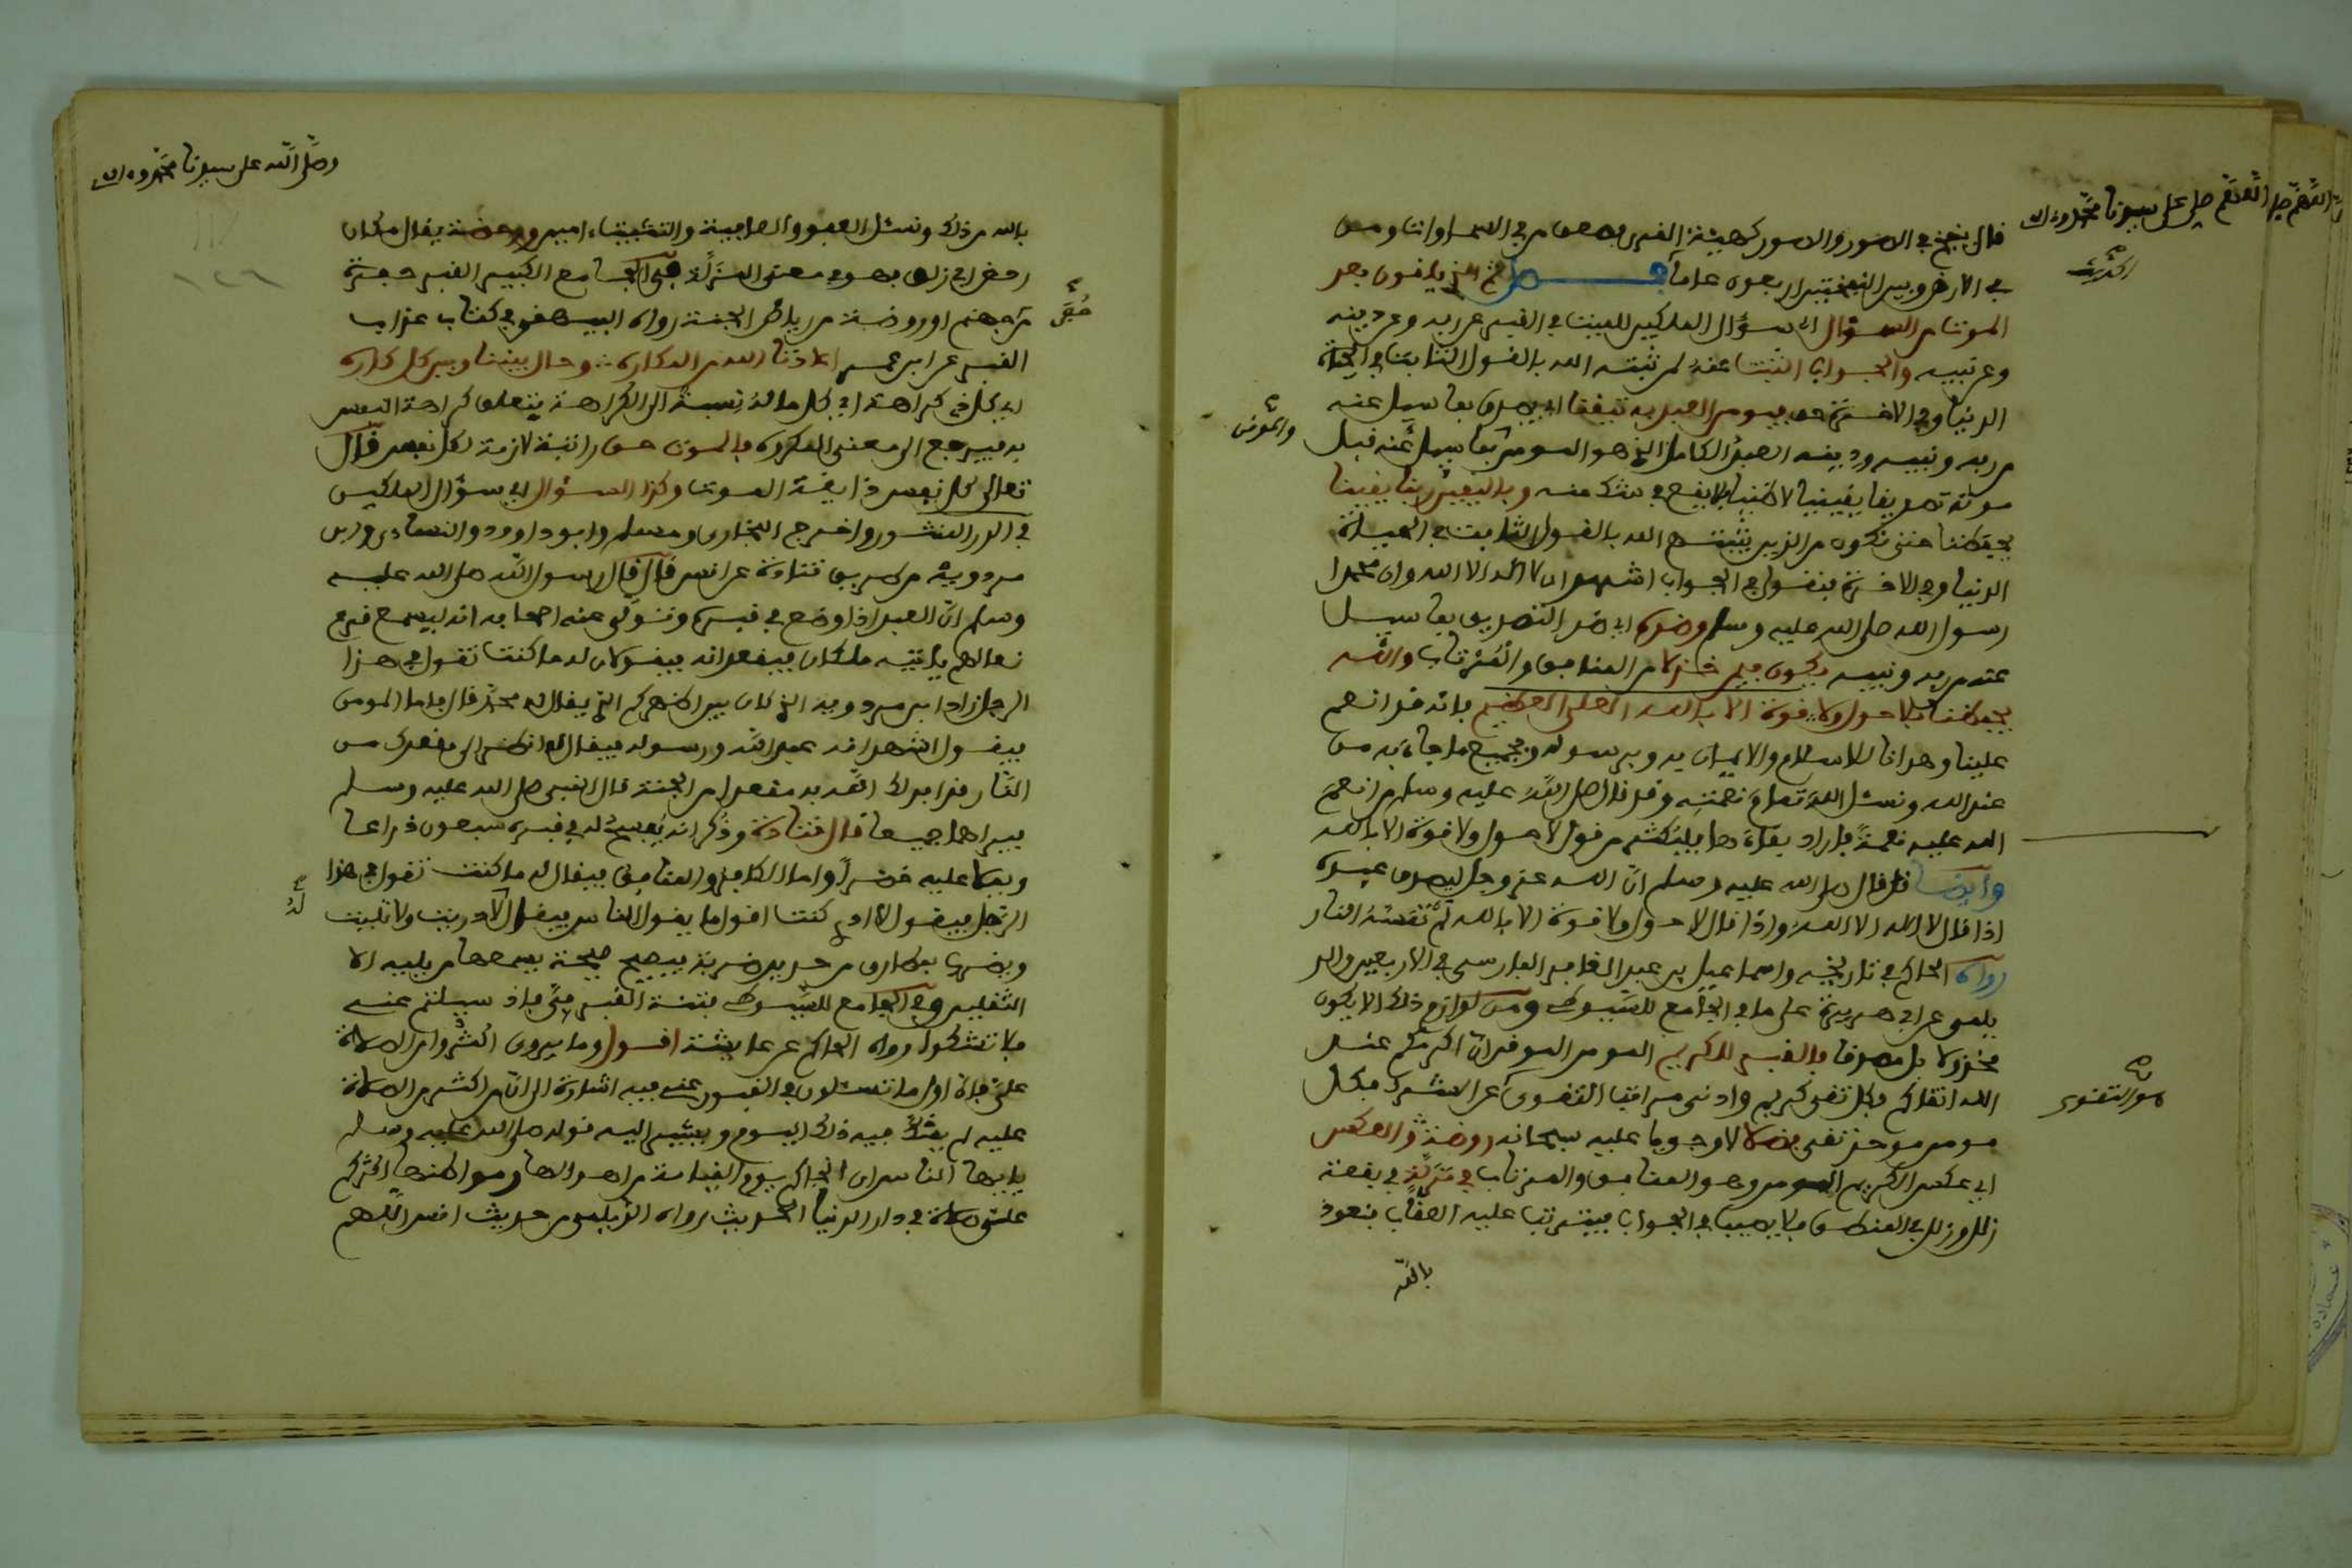 اللهم صل على سيدنا محمد وءاله
قال ينفخ في الصور والصور كهيئة القرن فصعق من في السماوات ومن
في الارض وبين النفختين اربعون عاما
الموت من السؤال اي سؤال الملكين للميت في القبر عن ربه وعن دينه
وعن نبيه والجواب الثبت عند من ثبته الله بالقول الثابت في الحياة
الدنيا وفي الاخرة حق فيومن العبد به تيقنا اي يصدق بما سيل عنه
والمومن
من ربه ونبيه ودينه العبد الكامل الذي هو المومن بما سيل عنه قبل
موته تصديقا يقينيا لا ظنيا لا يقع في شك منه وباليقين ربنا يقينا
يحفظنا حتى نكون من الذين يثبتهم الله بالقول الثابت في الحياة
الدنيا وفي الاخرة فنقول في الجواب اشهد ان لا اله الا الله وان محمدا
رسول الله صلى الله عليه وسلم وضده اي ضد التصديق بما سيل
عنه من ربه ونبيه يكون فيه خذلا من المنافق والمرتاب والله
يحفظنا فلا حول ولا قوة الا بالله العلي العظيم فانه قد انعم
علينا وهدانا للاسلام والايمان به وبرسوله وبجميع ما جاء به من
عند الله ونسئل الله تمام نعمته وقد قال صلى الله عليه وسلم من انعم
الله عليه نعمة فاراد بقاءها فليكثر من قول لا حول ولا قوة الا بالله
وايضا قد قال صلى الله عليه وسلم ان الله عز وجل ليصدق عبده
اذا قال لا اله الا الله واذا قال لا حول ولا قوة الا بالله لم تمسه النار
رواه الحاكم في تاريخه واسماعيل بن عبد الغافر الفارسي في الاربعين والد
يلمي عن ابي هريرة على ما في الجامع للسيوطي ومن لوازم ذلك الا يكون
مخذولا بل مصدقا فالقبر للكريم المومن الموفر ان اكرمكم عند
الله اتقاكم فكل تقي كريم وادنى مراقب التقوى عن الشرك فكل
هو التقوى
مومن موحد تقي فضلا لا وجوبا عليه سبحانه روضة والعكس
اي عكس الكريم المومن وهو المنافق والمرتاب في مزلة في بقعة
زلل وزلل في المنطق فلا يصيب في الجواب فيترتب عليه العقاب فنعوذ
بالله
وصلى الله على سيدنا محمد وءاله
١٢٦
بالله من ذلك ونسئل العفو والعافية والتثبيت ءامين وروضة يقال مكان
دحض اي زلق فهو في معنى المزلة في الجامع الكبير القبر حفرة
من جهنم او روضة من رياض الجنة رواه البيهقي في كتاب عذاب
القبر عن ابن عمر اعاذنا الله من المكاره وحال بيننا وبين كل كاره
اي كل ذي كراهة اي كل ما له نسبة الى الكراهة يتعلق كراهة النفس
به فيرجع الى معنى المكروه فالموت حق راتبة لازمة لكل نفس قال
تعالى كل نفس ذايقة الموت وكذا السؤال اي سؤال الملكين
في الدر المنثور واخرج البخاري ومسلم وابو داوود والنساءي وابن
مردويه من طريق قتادة عن انس قال قال رسول الله صلى الله عليه
وسلم ان العبد اذا وضع في قبره وتولى عنه اصحابه انه ليسمع قرع
نعالهم ياتيه ملكان فيقعدانه فيقولان له ما كنت تقول في هذا
الرجل زاد ابن مردويه الذي كان بين اظهركم الذي يقال له محمد قال فاما المومن
فيقول اشهد انه عبد الله ورسوله فيقال له انظر الى مقعدك من
النار قد ابدلك الله به مقعدا من الجنة قال النبي صلى الله عليه وسلم
فيراهما جميعا قال قتادة وذكر انه يفسح له في قبره سبعون ذراعا
ويملا عليه خضرا واما الكافر والمنافق فيقال له ما كنت تقول في هذا
الرجل فيقول لا ادري كنت اقول ما يقول الناس فيقال لا دريت ولا تليت
له
ويضرب بمطارق من حديد ضربة فيصيح صيحة يسمعها من يليه الا
الثقلين وفي الجامع للسيوطي فتنة القبر في فاذا سيلتم عني
فلا تشكوا رواه الحاكم عن عايشة اقول وما يروى اكثروا من الصلاة
علي فان اول ما تسئلون في القبور عني فيه اشارة الى ان من اكثر من الصلاة
عليه لم يشك فيه ذلك اليوم ويشير اليه قوله صلى الله عليه وسلم
يايها الناس ان انجاكم يوم القيامة من اهوالها ومواطنها اكثركم
علي صلاة في دار الدنيا الحديث رواه الديلمي من حديث انس اللهم